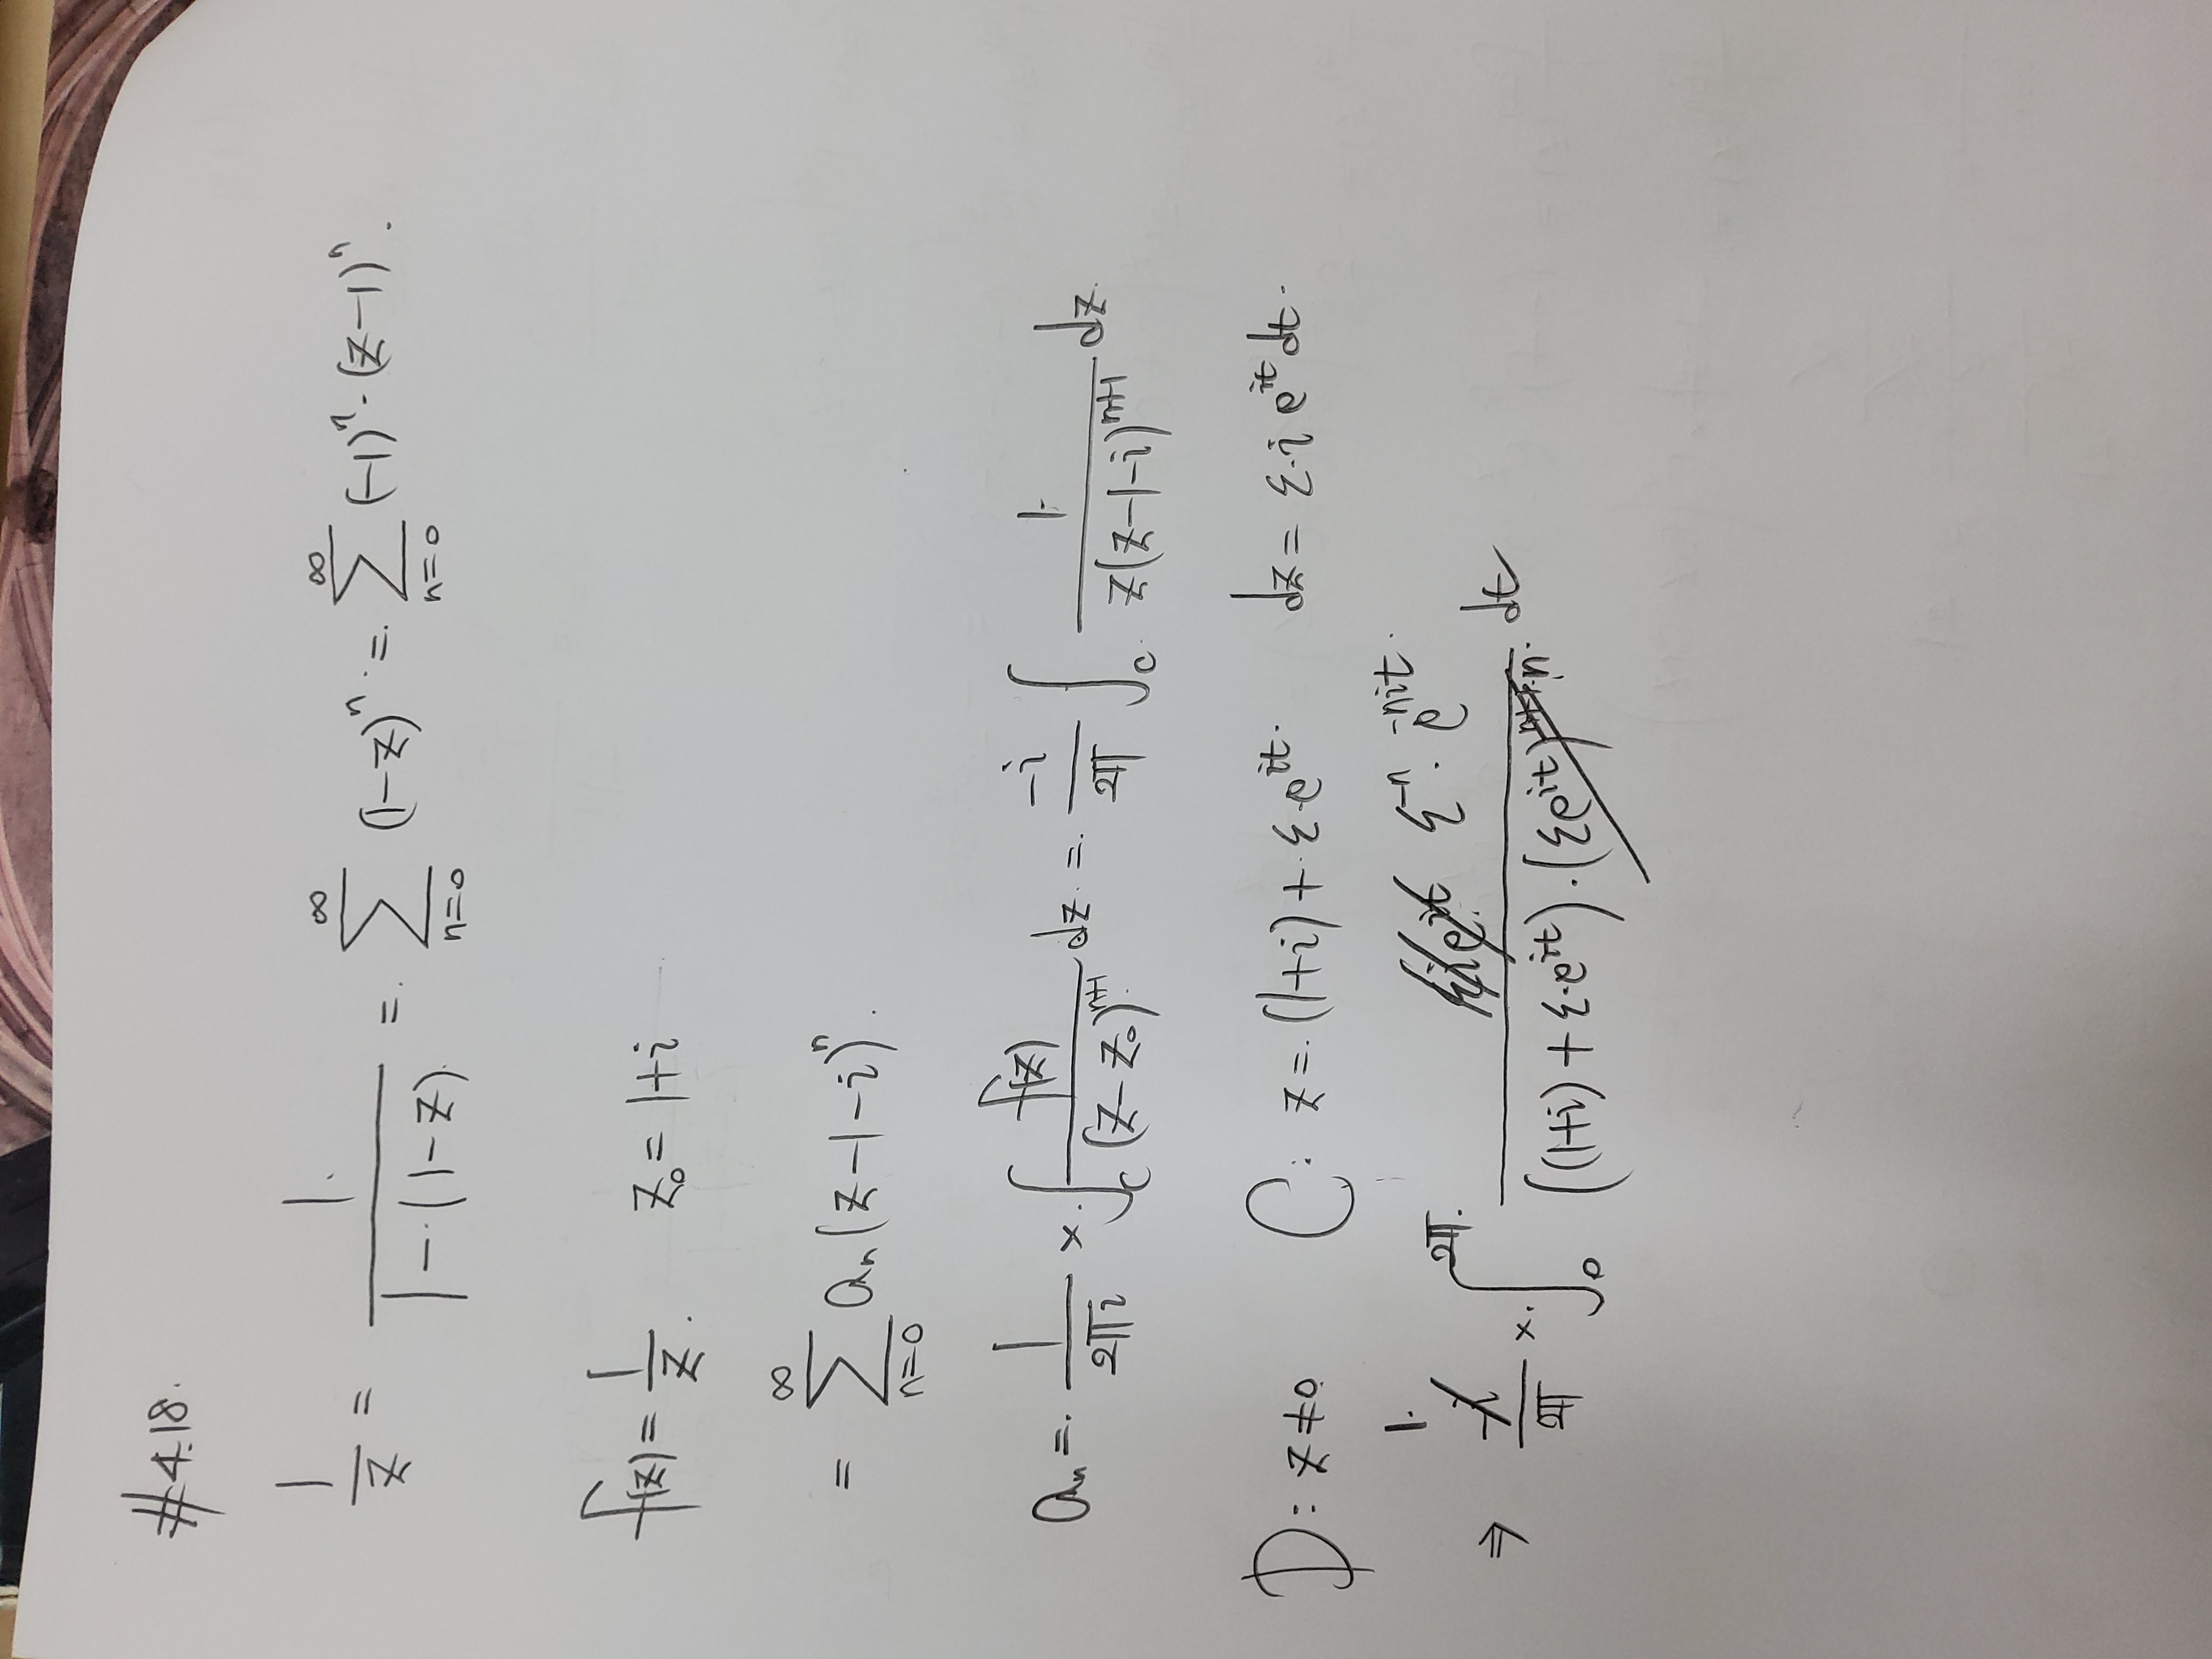 #4.18.
1/z = 1/(1-(1-z)) = ∑_{n=0}^{∞} (1-z)^n = ∑_{n=0}^{∞} (-1)^n · (z-1)^n.
f(z) = 1/z. z₀ = 1+i
= ∑_{n=0}^{∞} aₙ(z-1-i)^n.
aₙ = 1/(2πi) × ∫_C f(z)/(z-z₀)^{n+1} dz = -i/(2π) ∫_C 1/(z(z-1-i)^{n+1}) dz.
D: z≠0 C: z = (1+i) + ε·e^{it}. dz = ε·i e^{it} dt.
⇒ 1/(2π) × ∫_0^{2π} ε^{-n} · e^{-nit} / ((1+i) + ε·e^{it}) dt